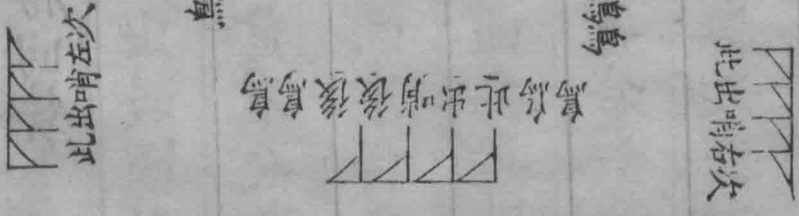 此出哨右次
鳥鳥
鳥鳥此出哨後後鳥鳥
此出哨左次